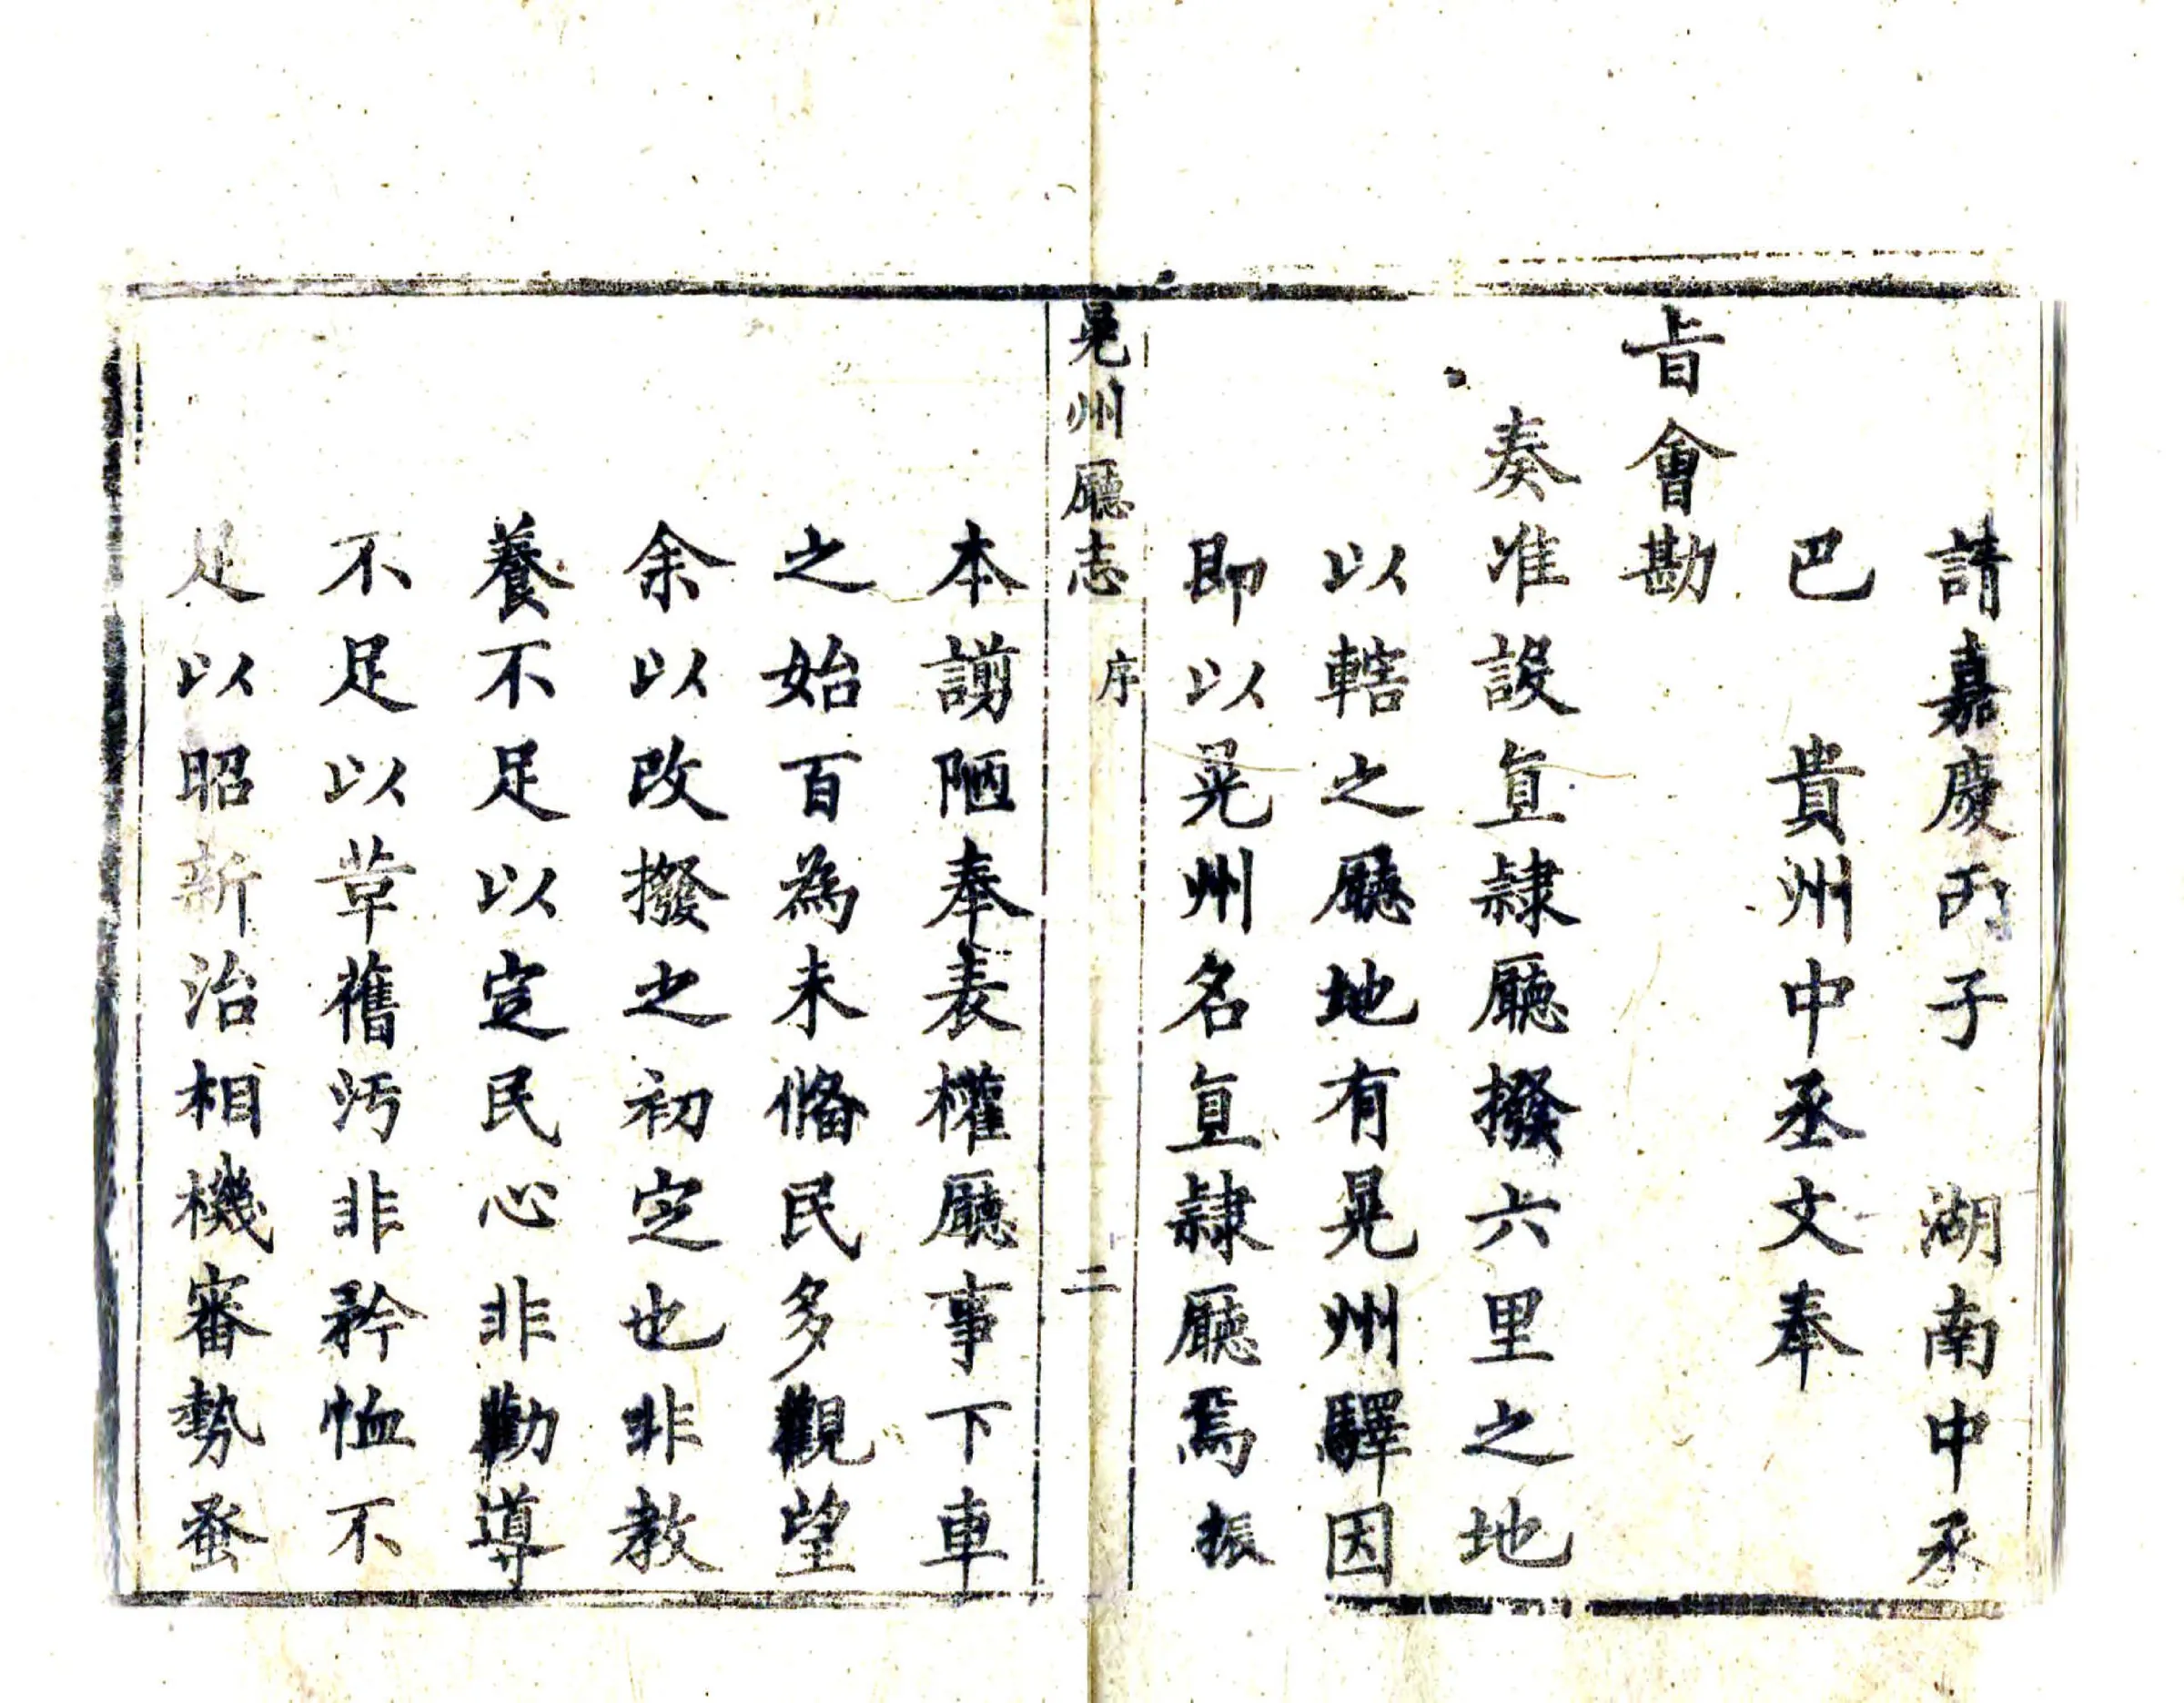 請嘉慶丙子　湖南中丞
巴　貴州中丞文奉
旨會勘
奏准設直隷廳撥六里之地
以轄之廳地有晃州驛因
即以晃州名直隷廳焉振
晃州廳志　序　二
本謭陋奉表權廳事下車
之始百為未俻民多觀望
余以改撥之初定也非教
養不足以定民心非勸導
不足以草舊汚非矜恤不
足以昭新治相機審勢蚤